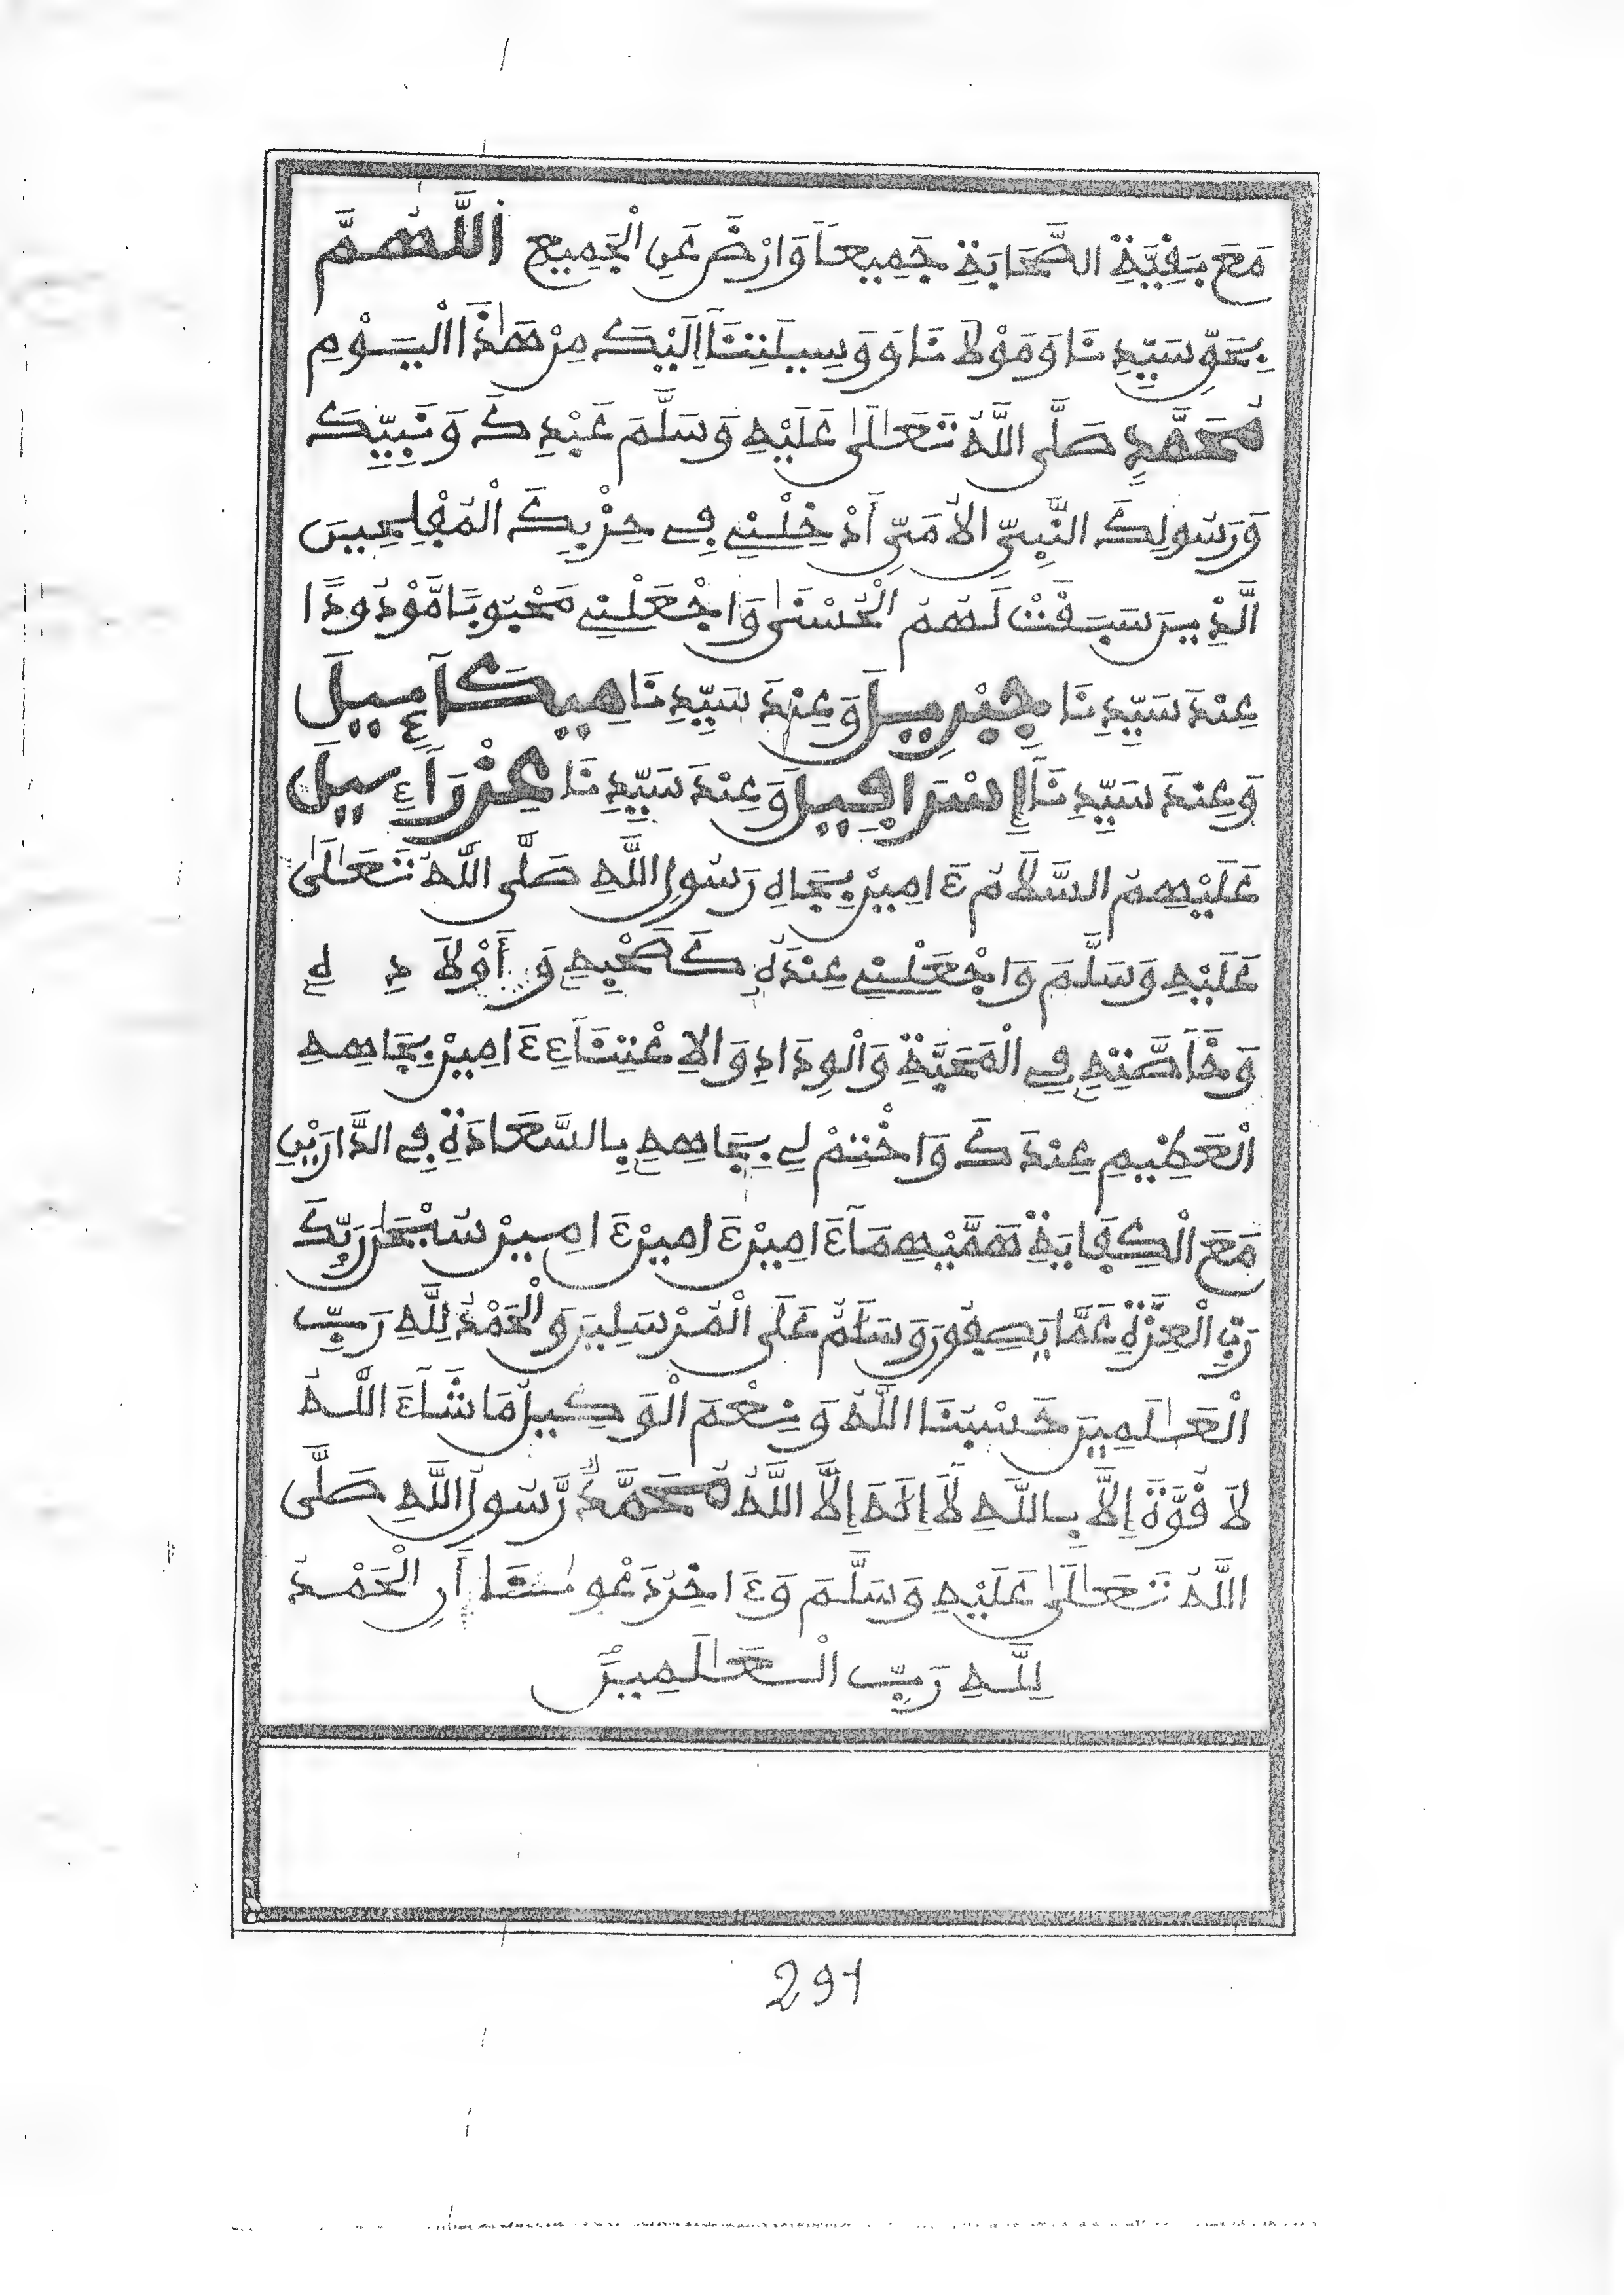 مَعَ بَقِيَّةِ الصَّحَابَةِ جَمِيعًا وَارْضَ عَنِ الْجَمِيعِ اللَّهُمَّ
بِحَقِّ سَيِّدِنَا وَمَوْلَانَا وَوَسِيلَتِنَا إِلَيْكَ مِنْ هَٰذَا الْيَوْمِ
مُحَمَّدٍ صَلَّى اللَّهُ تَعَالَىٰ عَلَيْهِ وَسَلَّمَ عَبْدِكَ وَنَبِيِّكَ
وَرَسُولِكَ النَّبِيِّ الْأُمِّيِّ أَدْخِلْنِي فِي حِزْبِكَ الْمُفْلِحِينَ
الَّذِينَ سَبَقَتْ لَهُمُ الْحُسْنَىٰ وَاجْعَلْنِي مَحْبُوبًا مَّوْدُودًا
عِنْدَ سَيِّدِنَا جِبْرِيلَ وَعِنْدَ سَيِّدِنَا مِيكَآءِيلَ
وَعِنْدَ سَيِّدِنَا إِسْرَافِيلَ وَعِنْدَ سَيِّدِنَا عِزْرَآءِيلَ
عَلَيْهِمُ السَّلَامُ ءَامِينَ بِجَاهِ رَسُولِ اللَّهِ صَلَّى اللَّهُ تَعَالَىٰ
عَلَيْهِ وَسَلَّمَ وَاجْعَلْنِي عِنْدَهُ كَصَحْبِهِ وَأَوْلَادِهِ
وَخَآصَّتِهِ فِي الْمَحَبَّةِ وَالْوِدَادِ وَالِاعْتِنَآءِ ءَامِينَ بِجَاهِهِ
الْعَظِيمِ عِنْدَكَ وَاخْتِمْ لِي بِجَاهِهِ بِالسَّعَادَةِ فِي الدَّارَيْنِ
مَعَ الْكِفَايَةِ هَمَّيْهِمَآ ءَامِينَ ءَامِينَ ءَامِينَ سُبْحَٰنَ رَبِّكَ
رَبِّ الْعِزَّةِ عَمَّا يَصِفُونَ وَسَلَٰمٌ عَلَى الْمُرْسَلِينَ وَالْحَمْدُ لِلَّهِ رَبِّ
الْعَٰلَمِينَ حَسْبُنَا اللَّهُ وَنِعْمَ الْوَكِيلُ مَا شَآءَ اللَّهُ
لَا قُوَّةَ إِلَّا بِاللَّهِ لَآ إِلَٰهَ إِلَّا اللَّهُ مُحَمَّدٌ رَّسُولُ اللَّهِ صَلَّى
اللَّهُ تَعَالَىٰ عَلَيْهِ وَسَلَّمَ وَءَاخِرُ دَعْوَانَا أَنِ الْحَمْدُ
لِلَّهِ رَبِّ الْعَٰلَمِينَ
291